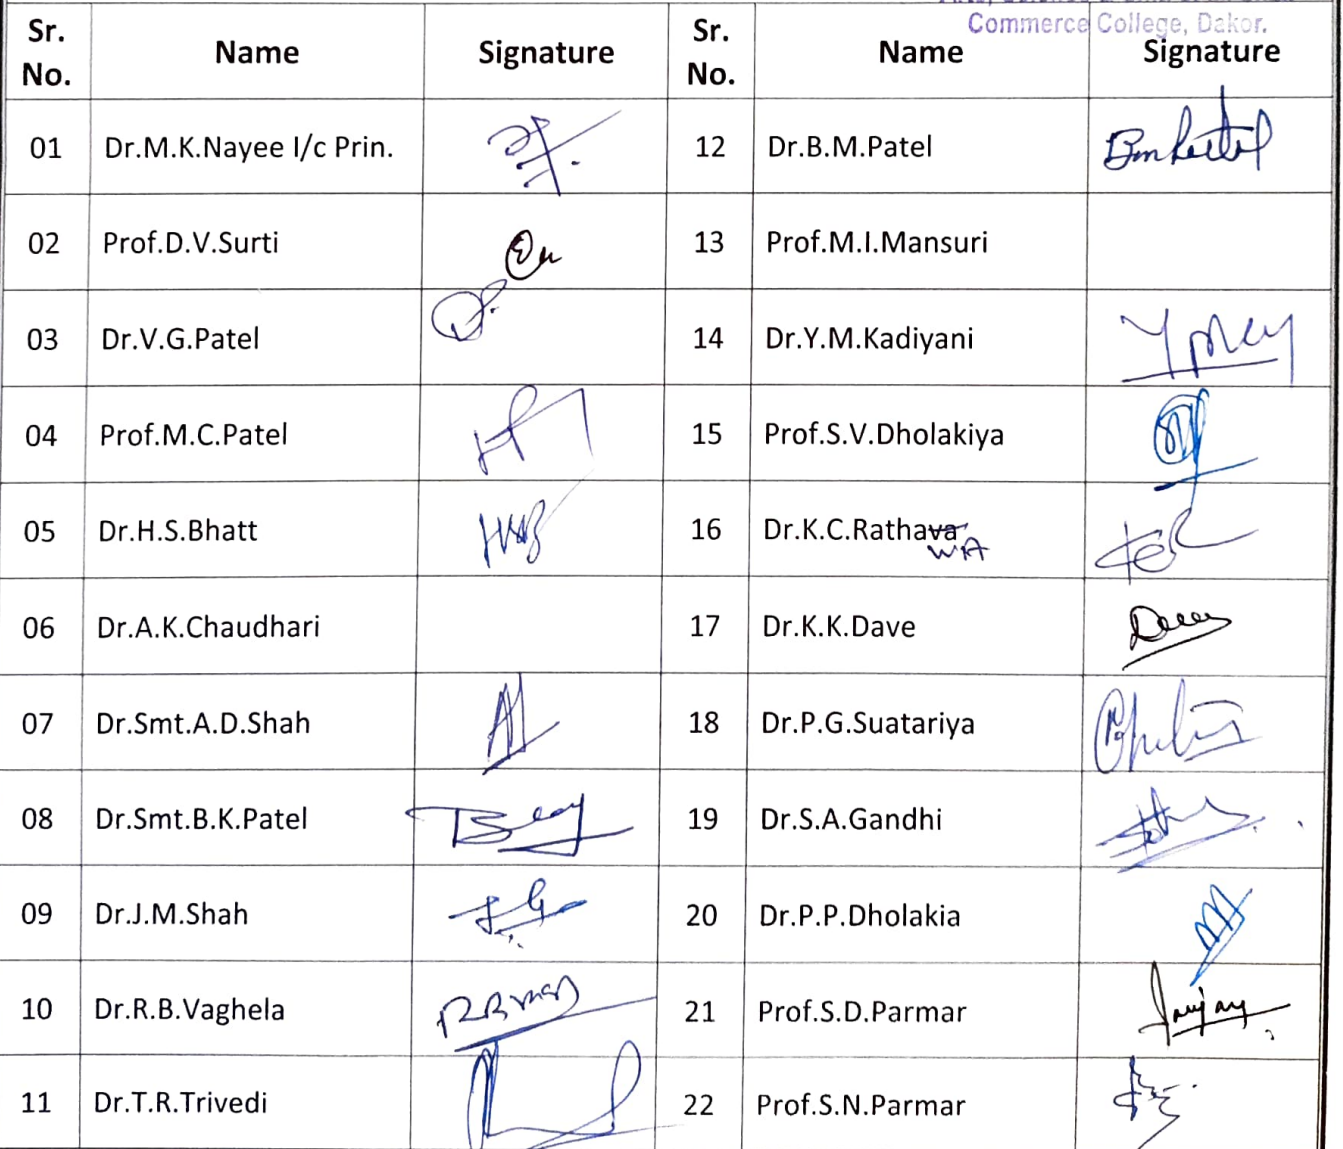 Commerce College, Dakor.
Sr. No. Name Signature Sr. No. Name Signature
01 Dr.M.K.Nayee I/c Prin. 12 Dr.B.M.Patel Bmpatel
02 Prof.D.V.Surti 13 Prof.M.I.Mansuri
03 Dr.V.G.Patel 14 Dr.Y.M.Kadiyani
04 Prof.M.C.Patel 15 Prof.S.V.Dholakiya
05 Dr.H.S.Bhatt 16 Dr.K.C.Rathava
WA
06 Dr.A.K.Chaudhari 17 Dr.K.K.Dave
07 Dr.Smt.A.D.Shah 18 Dr.P.G.Suatariya
08 Dr.Smt.B.K.Patel 19 Dr.S.A.Gandhi
09 Dr.J.M.Shah 20 Dr.P.P.Dholakia
10 Dr.R.B.Vaghela 21 Prof.S.D.Parmar
11 Dr.T.R.Trivedi 22 Prof.S.N.Parmar